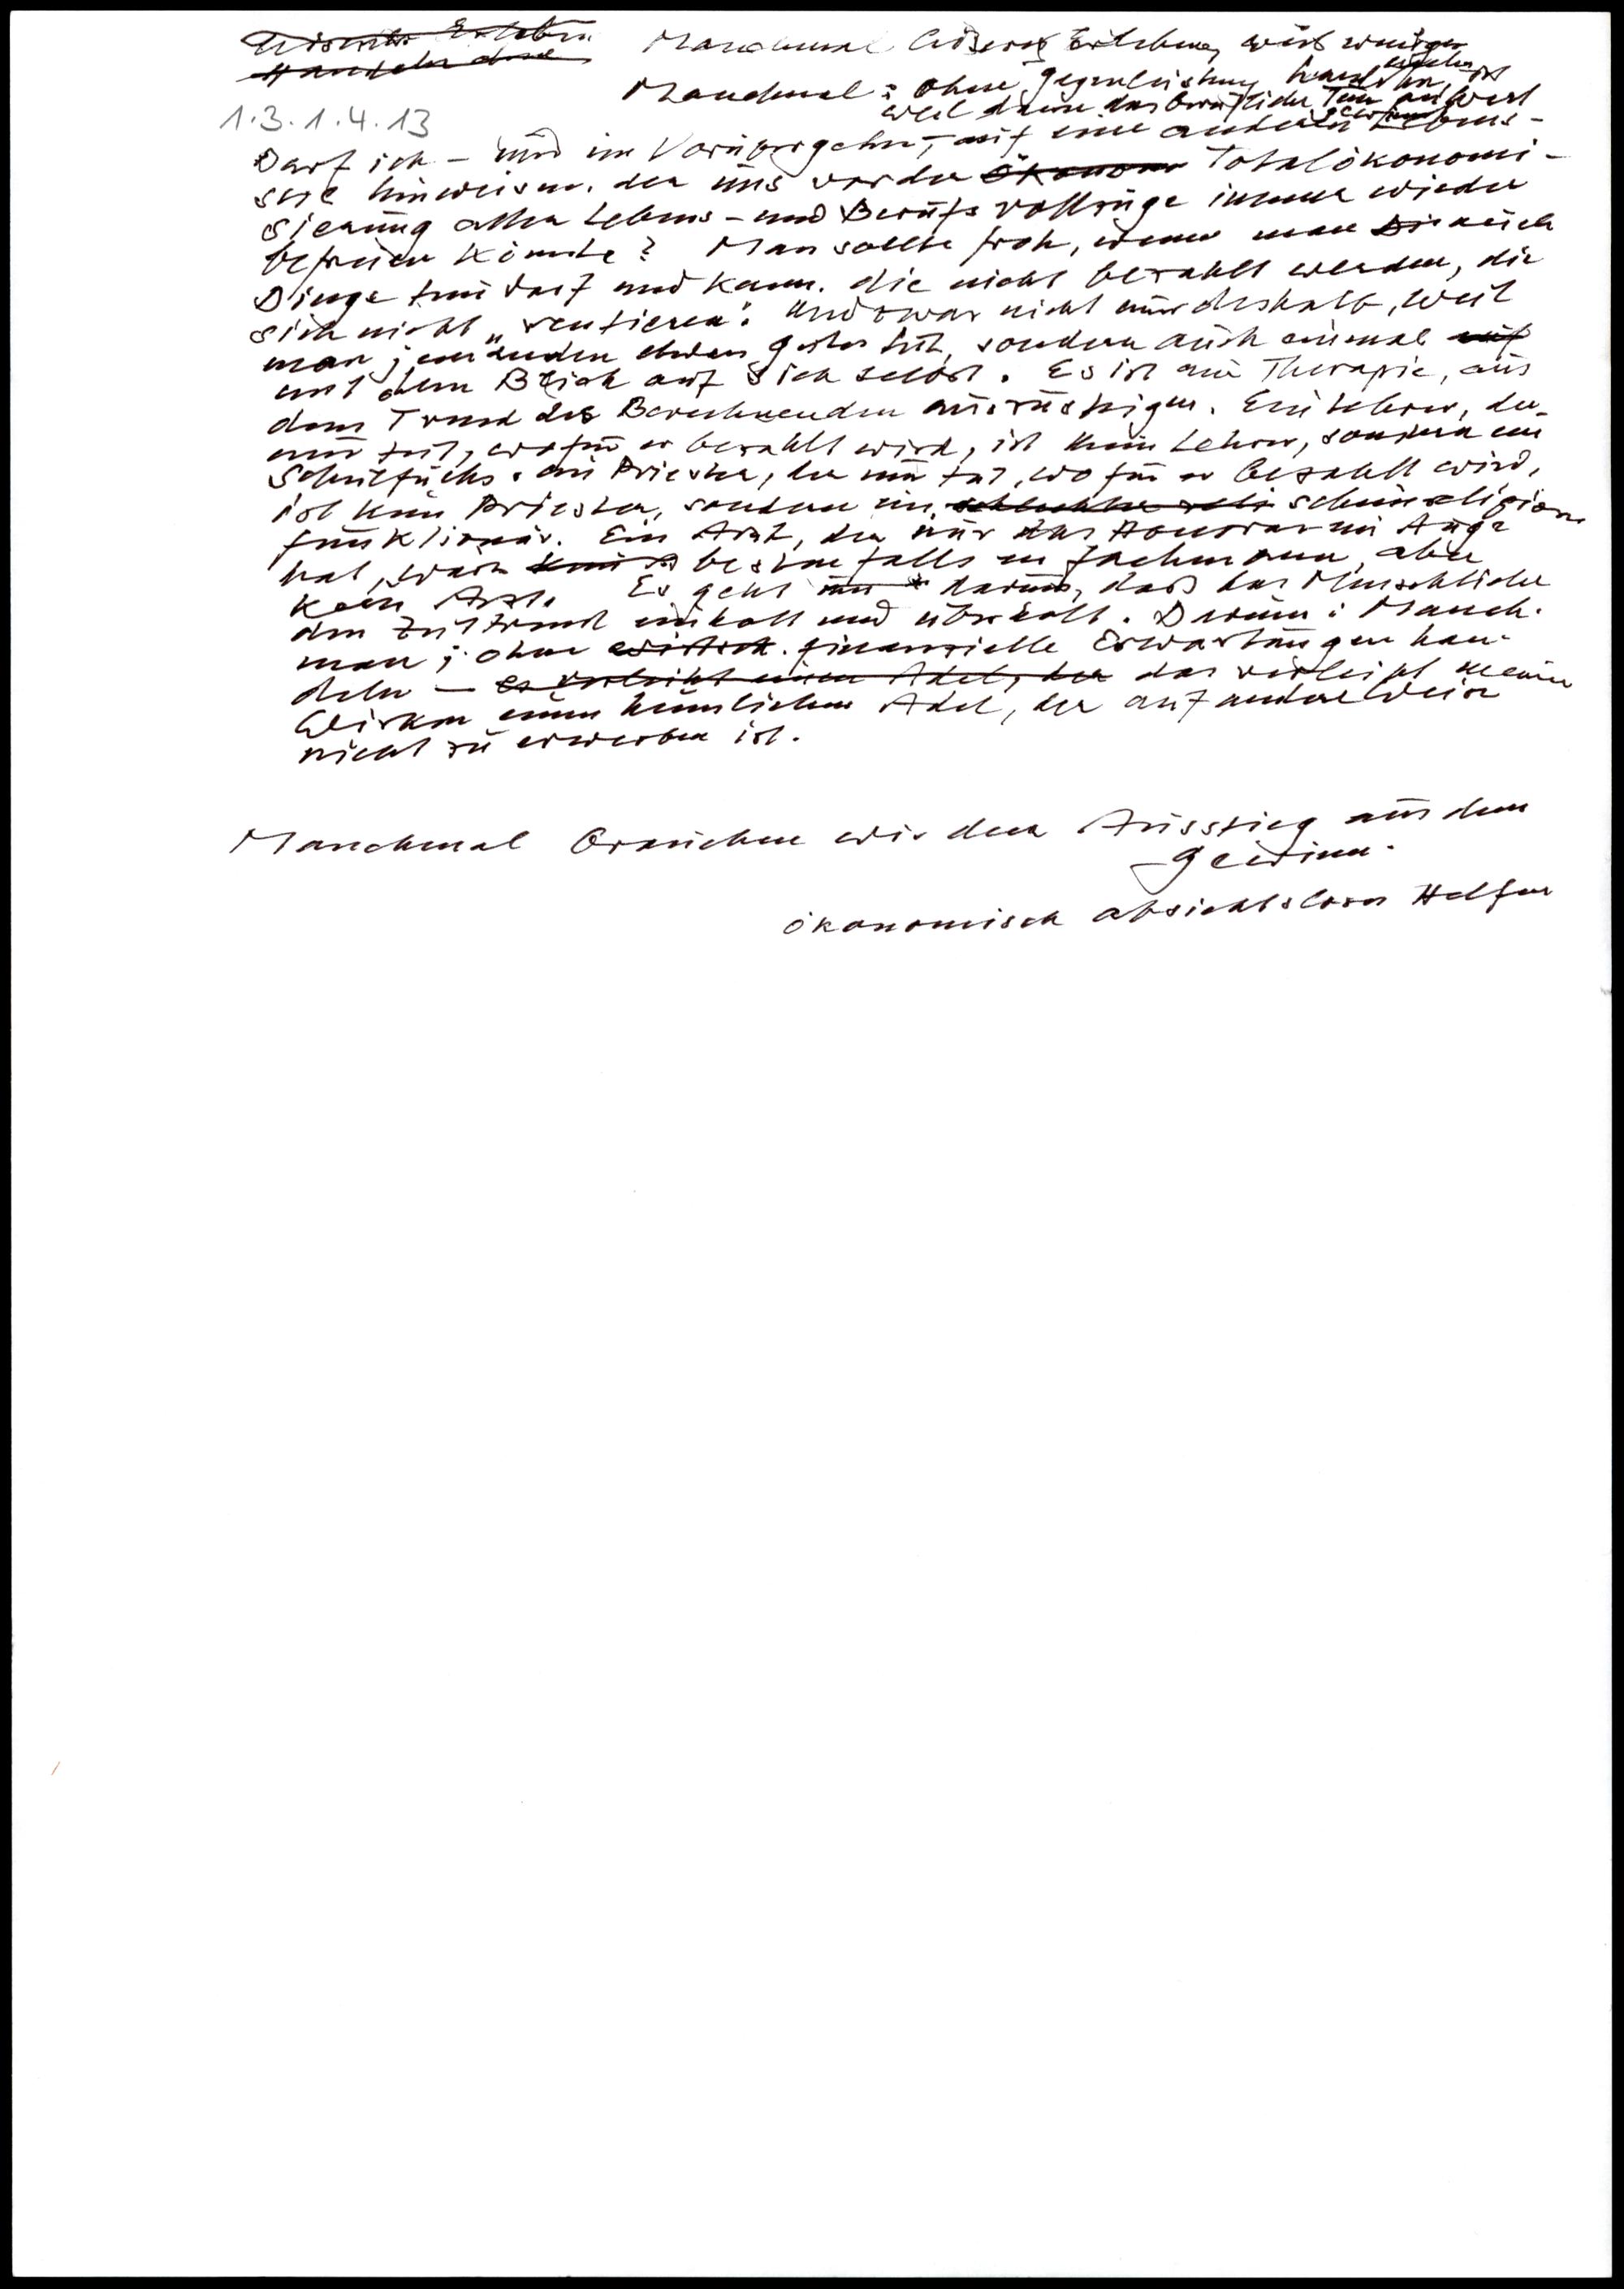 Manchmal Erleben, weil weniger
Manchmal: ohne Gegenleistung handeln, ist
weil dann das berufliche Tun an Wert
1.3.1.4.13
Darf ich – und im Vorübergehn, – auf eine andere Lebens-
hinweisen, der uns vor der ökonom Totalökonomi-
sierung aller Lebens- und Berufsvollzüge immer wieder
befreien könnte? Man sollte froh, wenn man auch
Dinge tun darf und kann, die nicht bezahlt werden, die
sich nicht „rentieren“. Und zwar nicht nur deshalb, weil
man jemanden etwas Gutes tut, sondern auch einmal auf
mit dem Blick auf sich selbst. Es ist eine Therapie, aus
dem Trend des Berechnenden auszusteigen. Ein Lehrer, der
nur tut, wofür er bezahlt wird, ist kein Lehrer, sondern ein
Schulfuchs. ein Priester, der nur tut, wofür er bezahlt wird,
ist kein Priester, sondern ein schlechter reli scheinreligiöser
funktionär. Ein Arzt, der nur das Honorar im Auge
hat, wäre bestenfalls ein Fachmann, aber
kein Arzt. Es geht nur darum, daß das Menschliche
den Zeittrend einholt und überholt. Darum: Manch-
man; ohne wirtsch. finanzielle Erwartungen han-
deln – es verleiht einen Adel, der das verleiht meinem
Wirken einen heimlichen Adel, der auf andere Weise
nicht zu erwerben ist.
Manchmal brauchen wir den Ausstieg aus dem
Gewinn.
ökonomisch absichtsloses Helfen